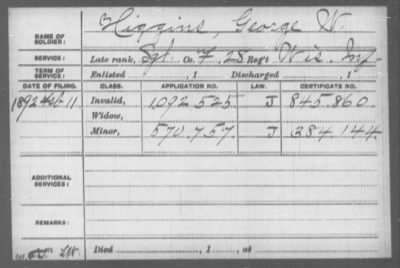 NAME OF SOLDIER: Higgins, George W.
SERVICE: Late rank, Sgt. Co. F, 28 Reg't Wis. Inf.
TERM OF SERVICE: Enlisted , 1 Discharged , 1
DATE OF FILING. CLASS. APPLICATION NO. LAW. CERTIFICATE NO.
1892 Feb. 11 Invalid, 1,092,525. J 845.860.
Widow,
Minor, 570.757. J 384.144
ADDITIONAL SERVICES:
REMARKS:
Died , 1 , at